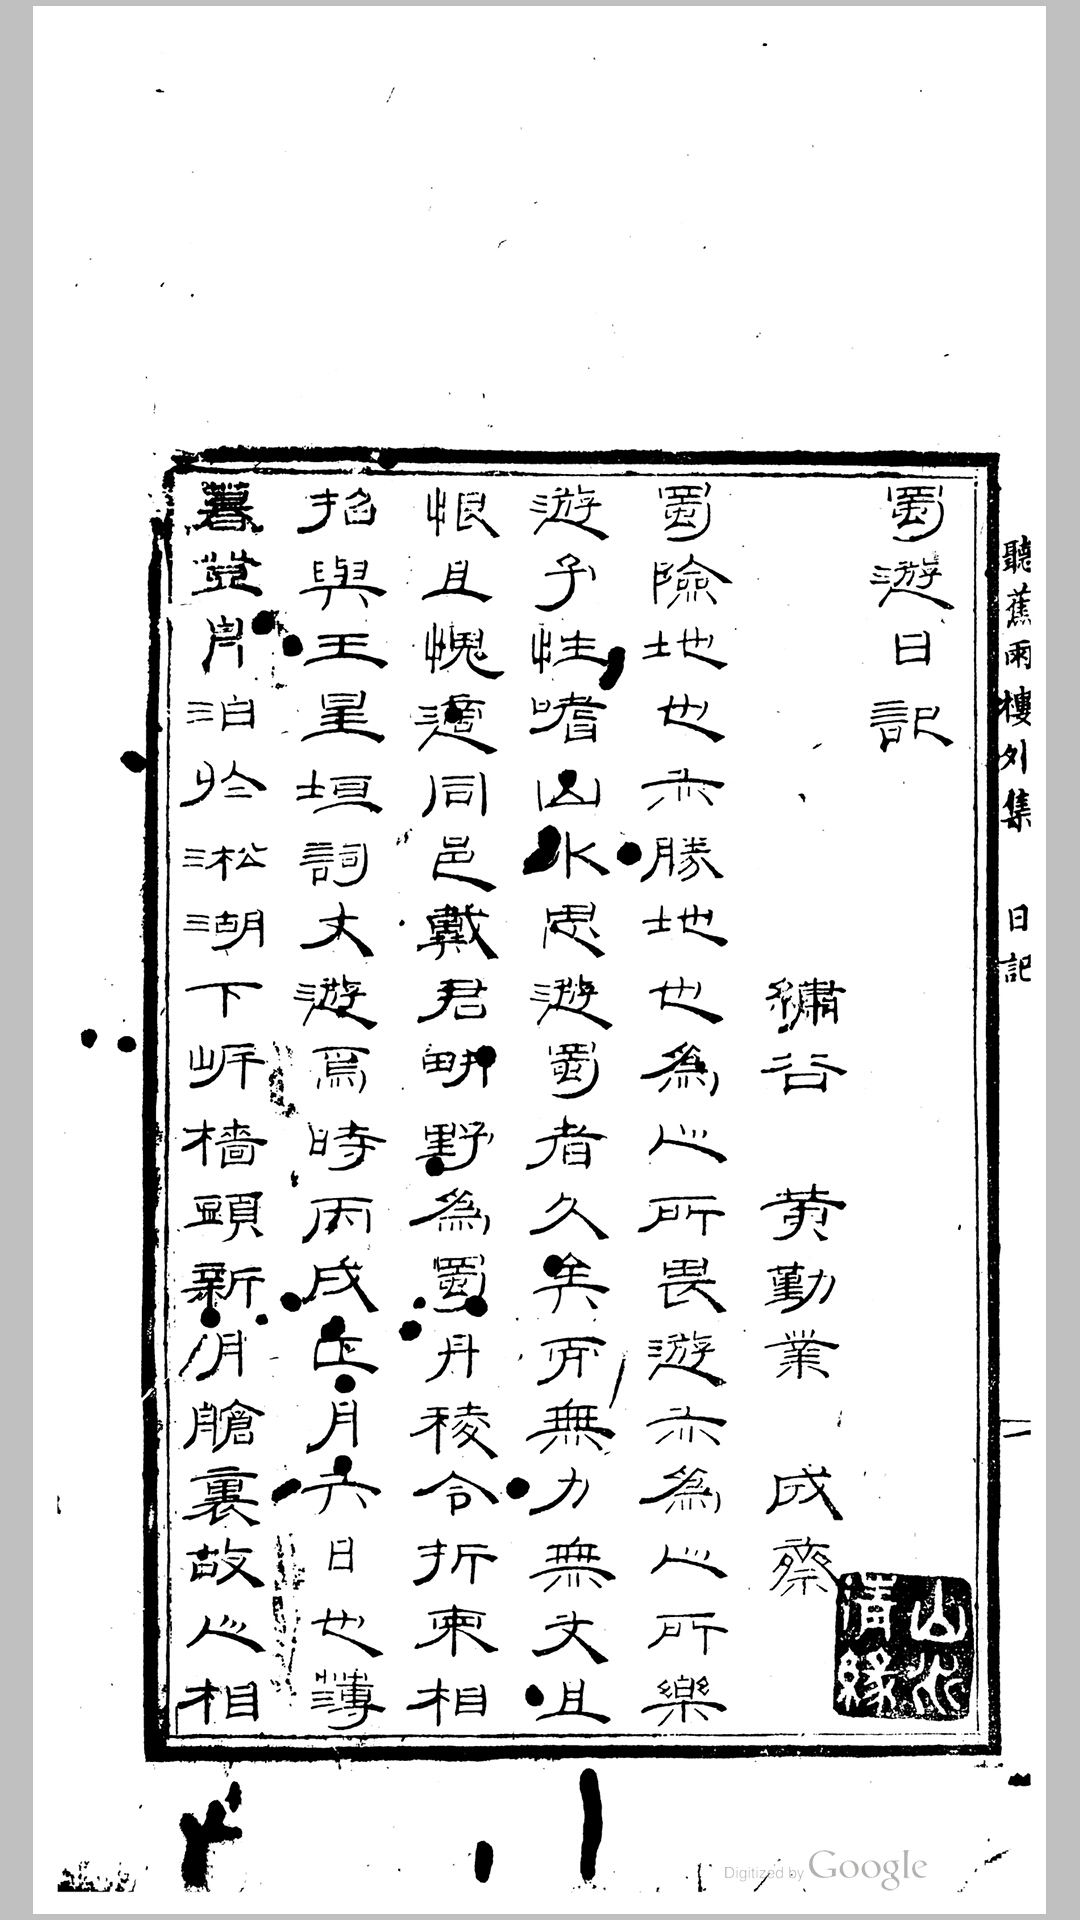 聽蕉雨樓外集　日記　一
蜀遊日記
繡谷　黄勤業　成齋
山水清緣
蜀險地也亦勝地也為人所畏遊亦為人所樂
遊子性嗜山水思遊蜀者久矣而無力無文且
恨且愧適同邑戴君畊野為蜀丹稜令折柬相
招與王星垣詞丈遊焉時丙戌正月六日也薄
暮登舟泊於淞湖下岸檣頭新月艙裏故人相
Digitized by Google